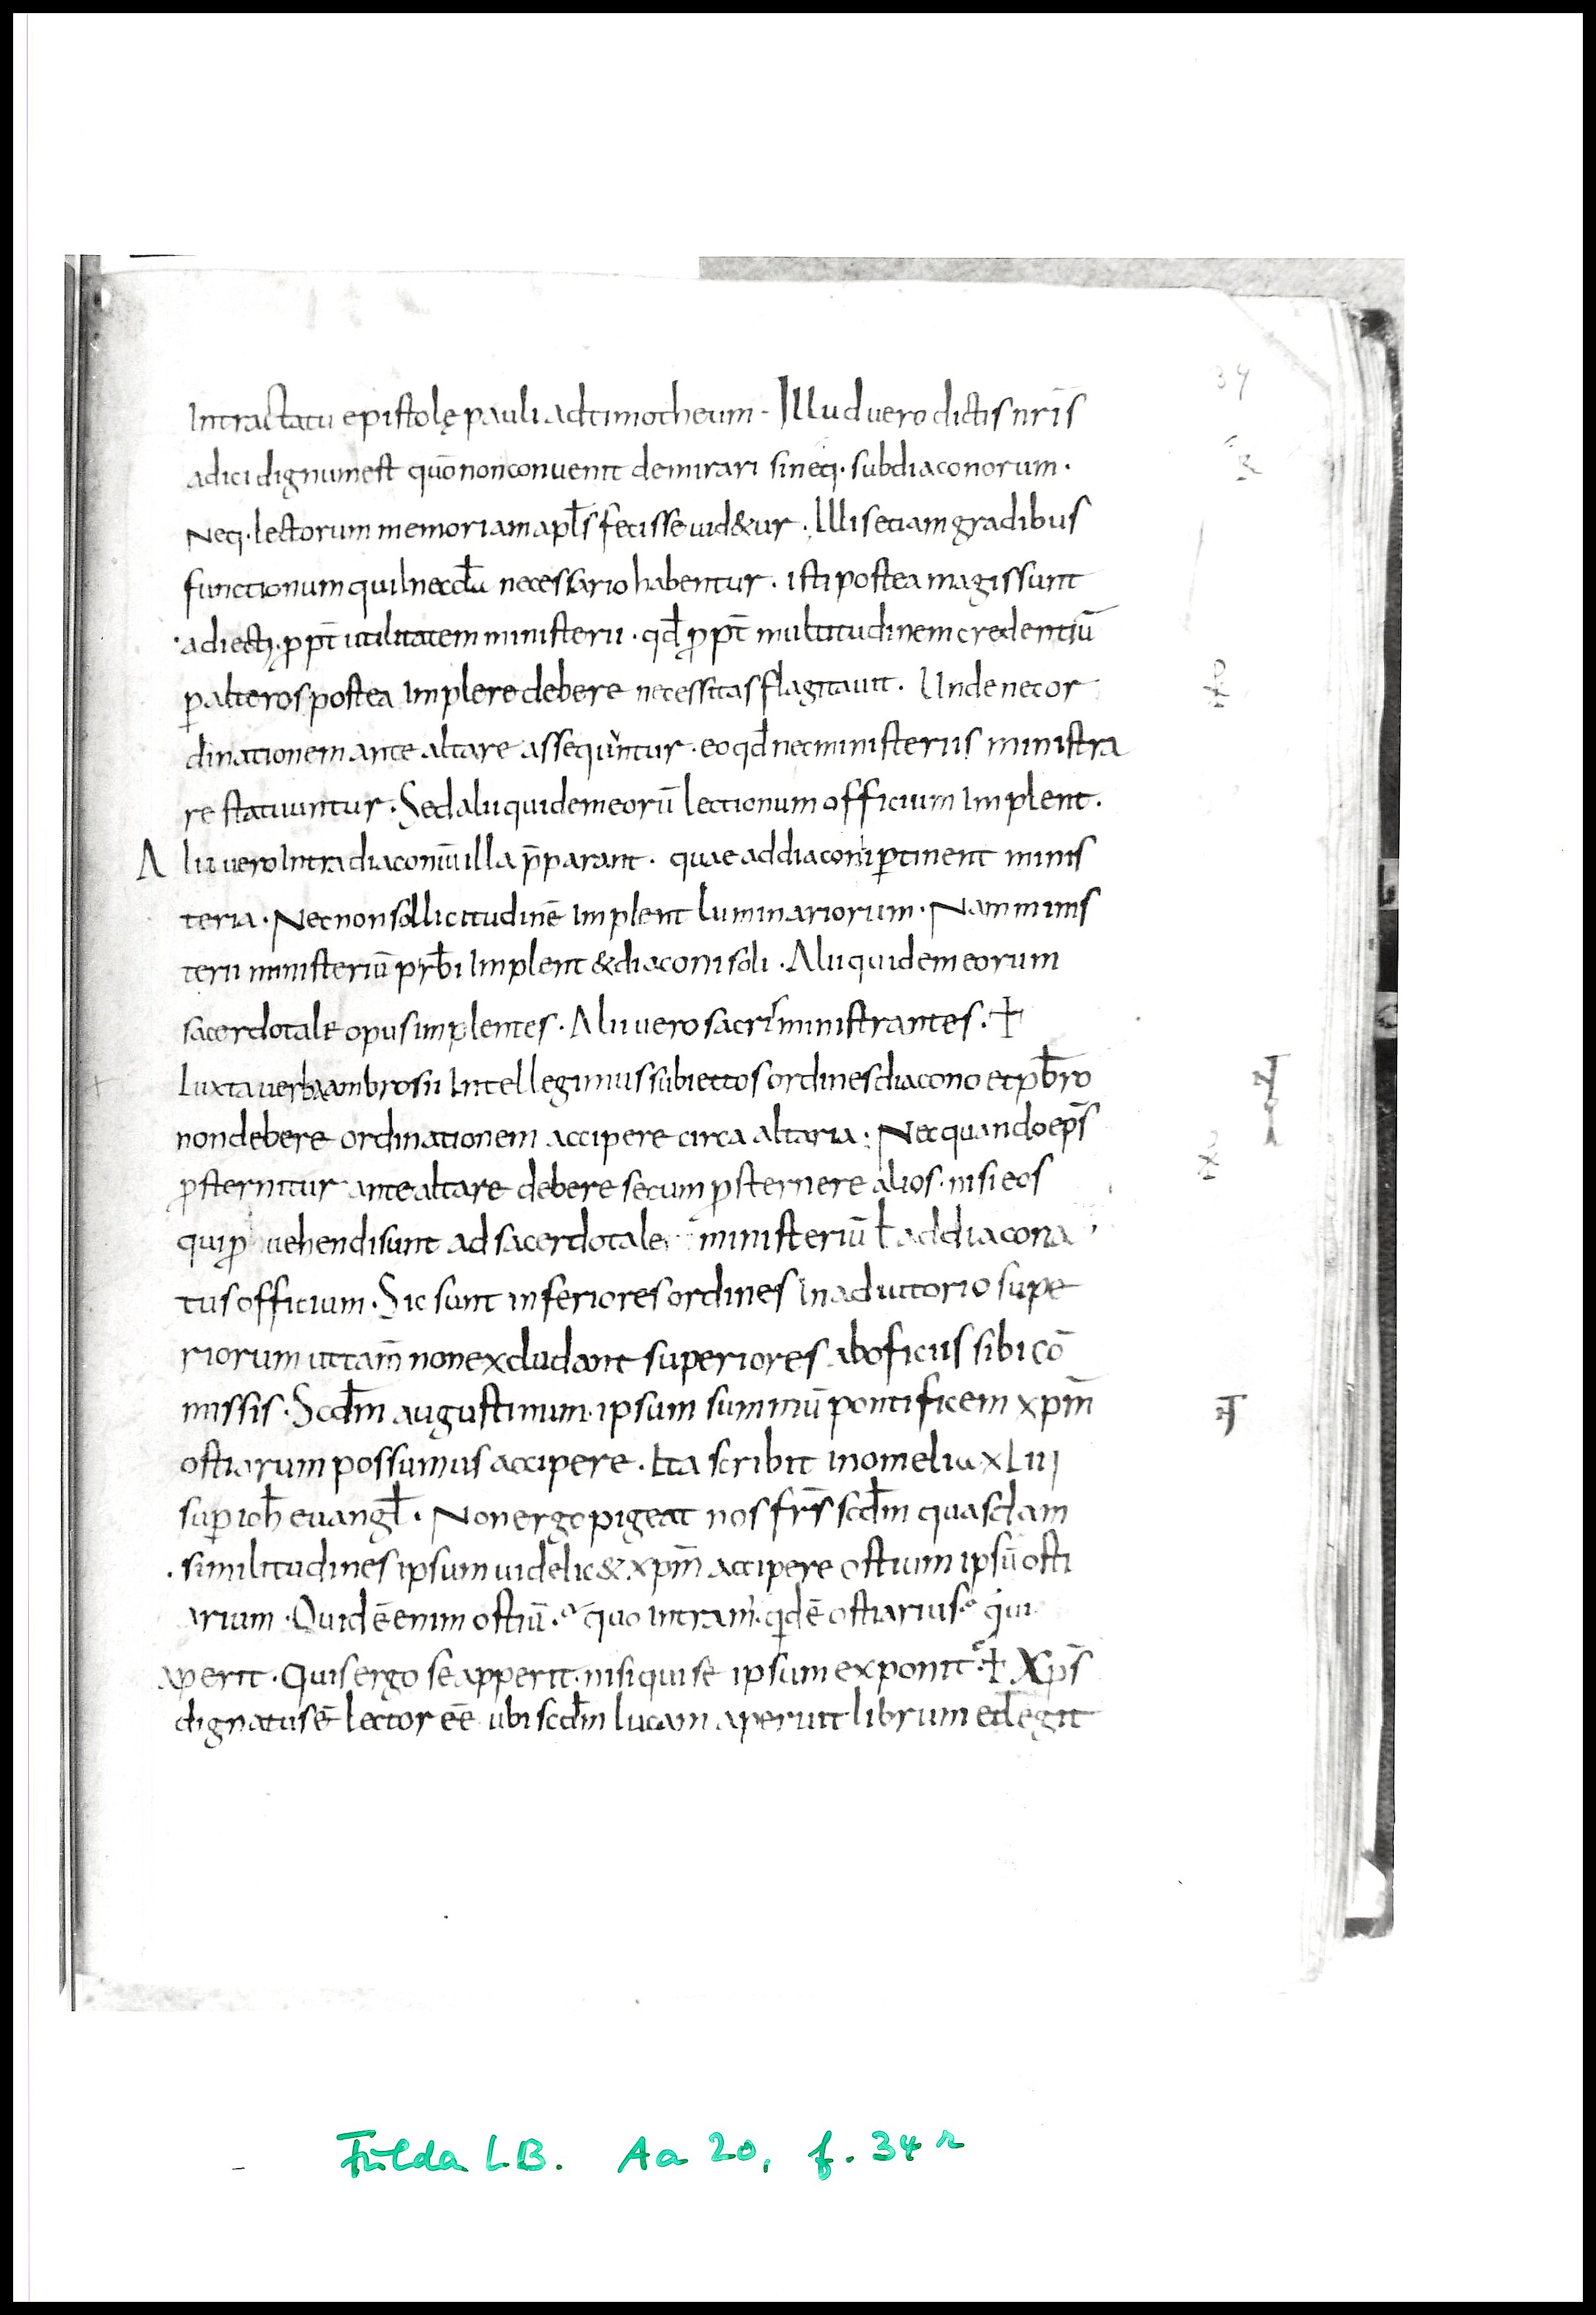 34
In tractatu epistolę pauli ad timotheum · Illud vero dictis nr̄is
adici dignum est quō non convenit demirari si neq· subdiaconorum ·
Neq· lectorum memoriam apl̄s fecisse vid&ur · Illis etiam gradibus
functionum qui necessario habentur · isti postea magis sunt
adiecti · ꝓpt̄ utilitatem ministerii · qđ ꝓpt̄ multitudinem credentiū
ꝑ alteros postea Implere debere necessitas flagitavit · Unde nec or
dinationem ante altare assequuntur · eo qđ nec ministeriis ministra
re statuuntur · Sed alii quidem eorū lectionum officium Implent ·
Alii vero Intra diaconiū illa p̄parant · quae ad diaconi ꝑtinent minis
teria · Nec non sollicitudinē Implent luminariorum · Nam minis
terii ministeriū prb̄i Implent & diaconi soli · Alii quidem eorum
sacerdotale opus implentes · Alii vero sacris ministrantes · +
Iuxta verba ambrosii Intellegimus subiectos ordines diacono et pb̄ro
non debere ordinationem accipere circa altaria · Nec quando ep̄s
ꝓsternitur ante altare debere secum ꝓsternere alios · nisi eos
qui ꝓvehendi sunt ad sacerdotale ministeriū ł ad diacona
tus officium · Sic sunt inferiores ordines In adiutorio supe
riorum ut tam̄ non excludant superiores ab oficiis sibi cō
missis · Scd̄m augustinum · ipsum summū pontificem xp̄m
ostiarum possumus accipere · Ita scribit in omelia xLiii
suꝑ ioh̄ evangl̄ · Non ergo pigeat nos fr̄s scd̄m quasdam
similitudines ipsum videlic& xp̄m accipere ostium ipsū osti
arium · Quid ē enim ostiū · quo intram̄ · qid ē ostiarius · qui
aperit · Quis ergo se apperit · nisi qui se ipsum exponit · + Xp̄s
dignatus ē lector eē ubi scd̄m lucam aperuit librum et legit
Fulda LB. Aa 20, f. 34 r